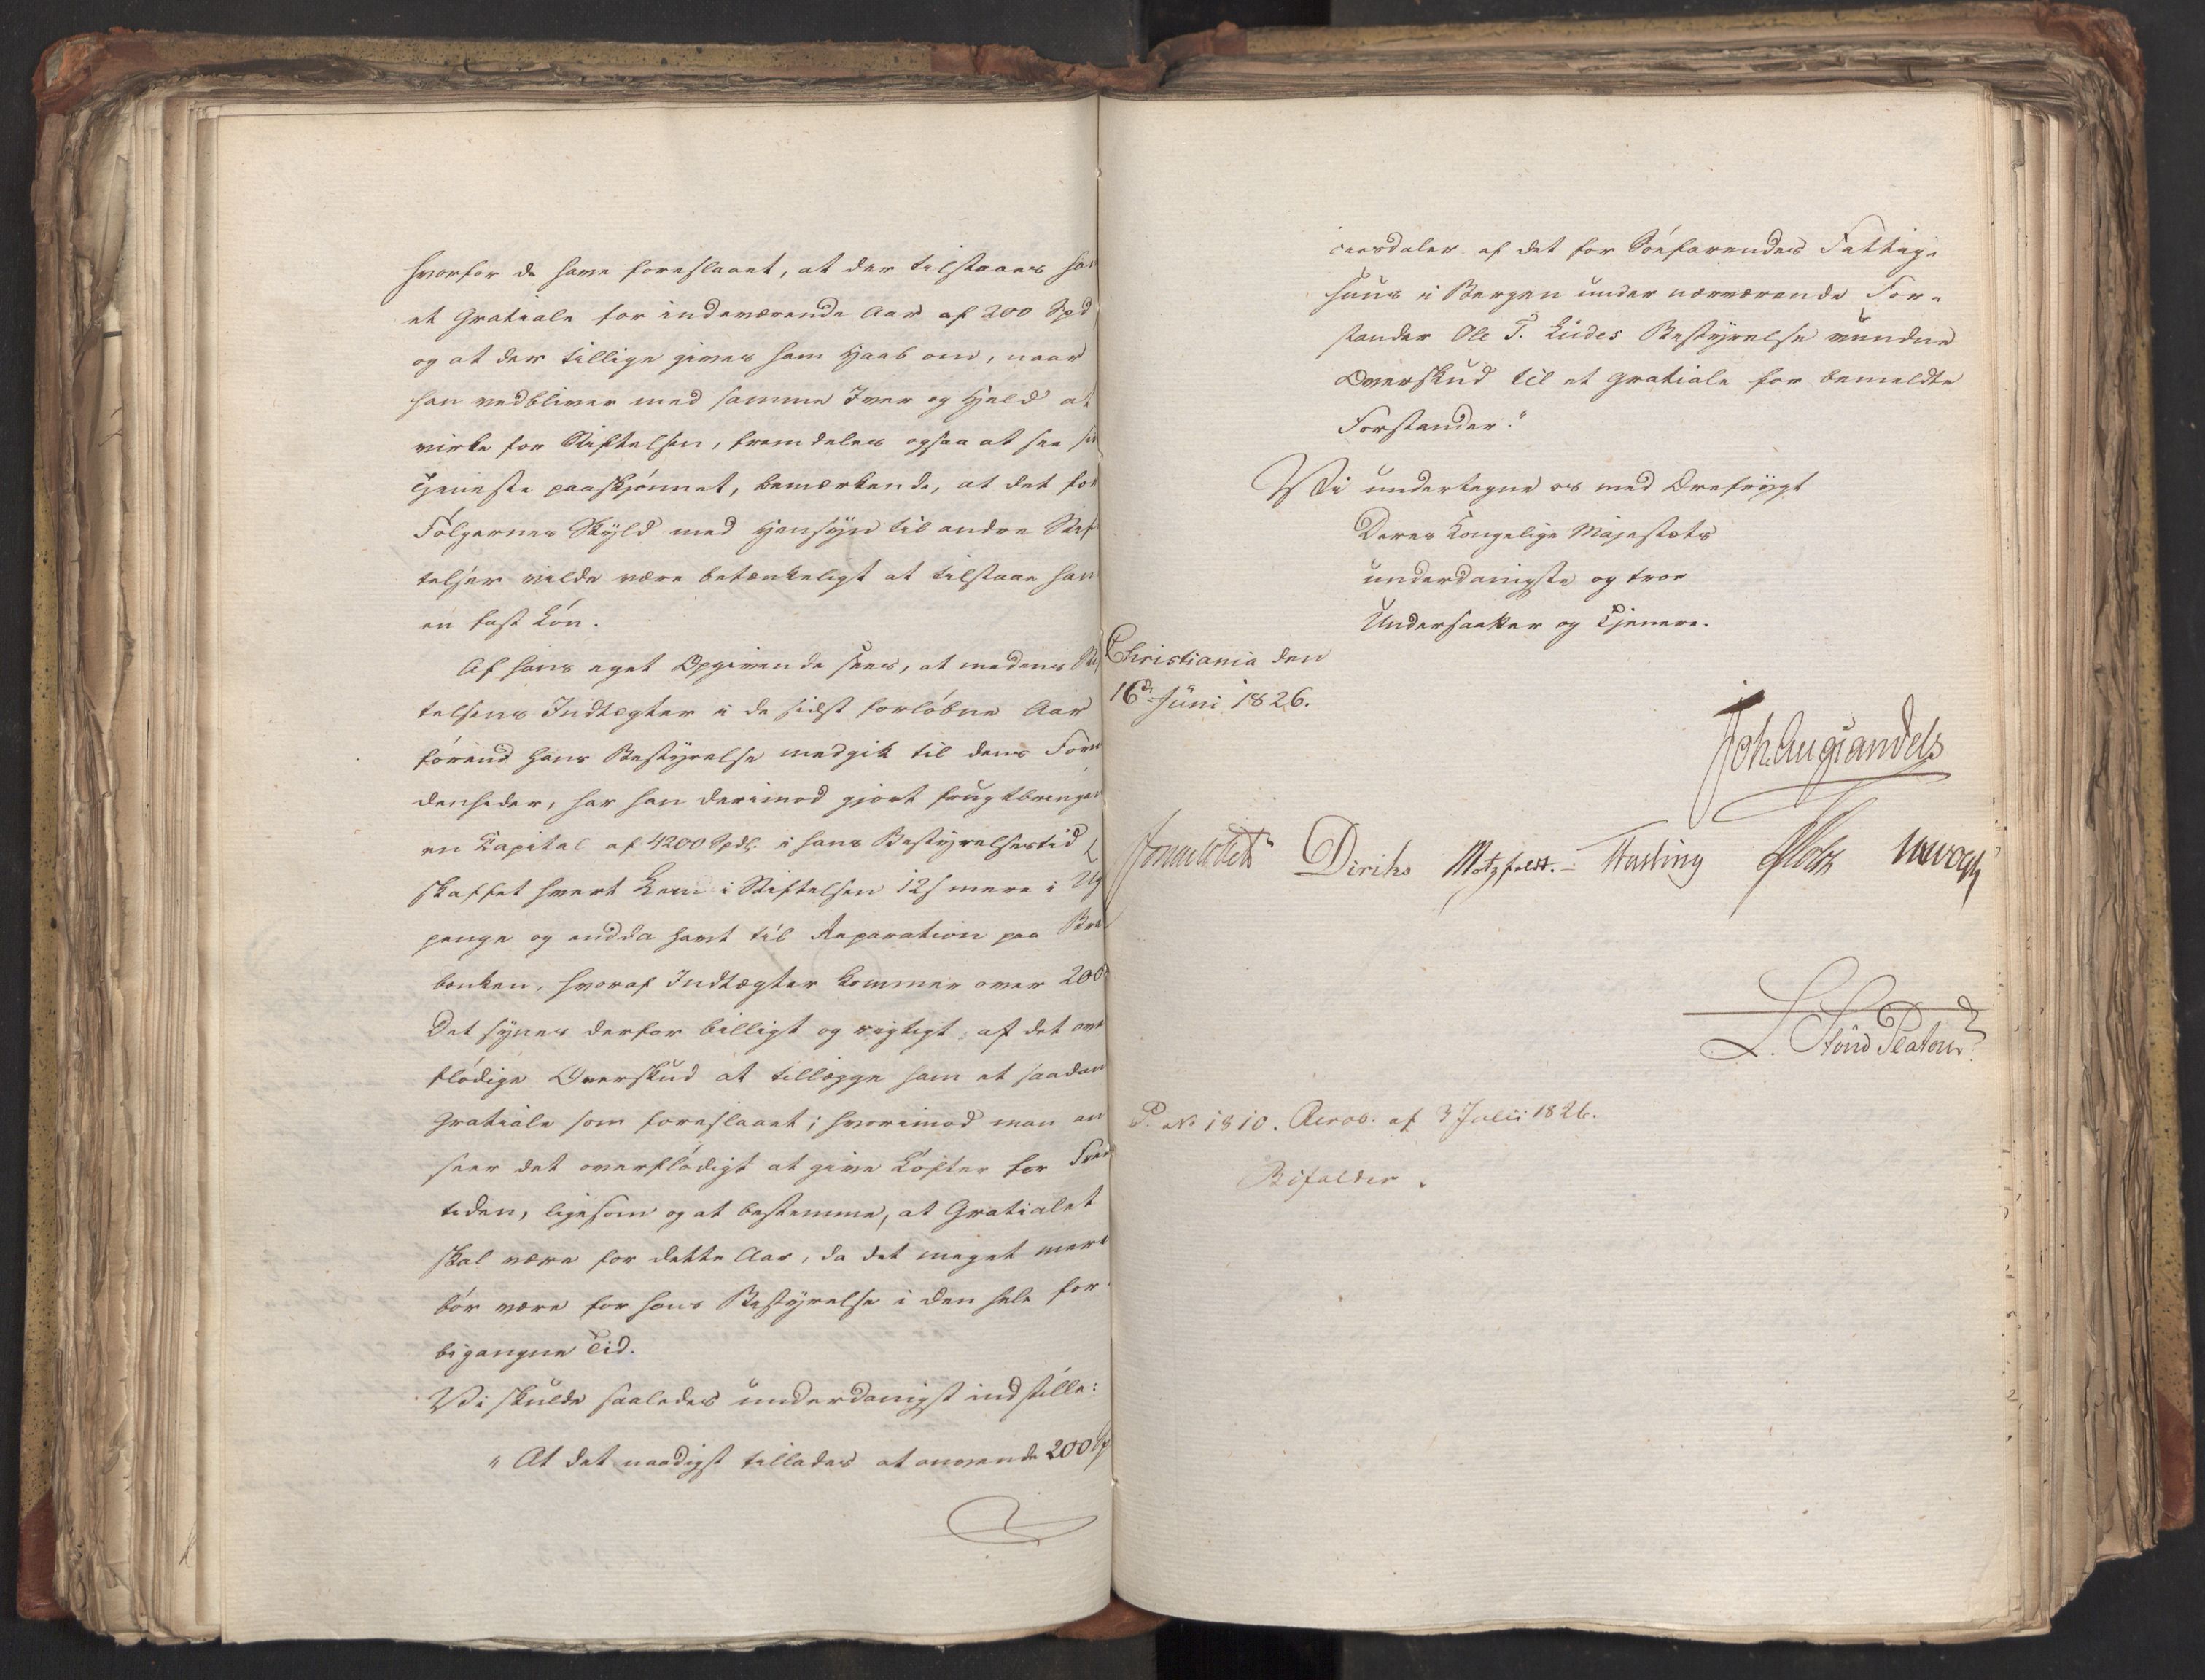 hvorfor de have foreslaaet, at der tilstaaes ham
et Gratiale for indeværende Aar af 200 Spd
og at der tillige gives ham Haab om, naar
han vedbliver med samme Iver og Held at
virke for Stiftelsen, fremdeles ogsaa at see sin
Tjeneste paaskjønnet, bemærkende, at det for
Følgernes Skyld med Hensyn til andre Stif
telser vilde være betænkeligt at tilstaae ham
en fast Løn.
Af hans eget Opgivende sees, at medens Stif
telsens Indtægter i de sidst forløbne Aar
førend hans Bestyrelse medgik til dens For
denheder, har han derimod gjort frugtbringen
en Kapital af 4200 Spdlr. i hans Bestyrelsestid
skaffet hvert Lem i Stiftelsen 12 s mere i Uge
penge og endda havt til Reparation paa
banken, hvoraf Indtægter kommer over 200
Det synes derfor billigt og rigtigt af det over
flødige Overskud at tillægge ham et saadan
Gratiale som foreslaaet; hvorimod man an
seer det overflødigt at give Løfter for Frem
tiden, ligesom og at bestemme, at Gratialet
skal være for dette Aar, da det meget mere
bør være for hans Bestyrelse i den hele for
bigangne Tid.
Vi skulde saaledes underdanigst indstille:
"At det naadigst tillades at anvende 200 Sp
ciesdaler af det for Søefarendes Fattig-
huus i Bergen under nærværende For-
stander Ole T. Liedes Bestyrelse vundne
Overskud til et Gratiale for bemeldte
Forstander."
Vi undertegne os med Ærefrygt
Deres Kongelige Majestæts
underdanigste og troe
Undersaatter og Tjenere.
Christiania den
16d Juni 1826.
Joh. Aug Sandels
Diriks Motzfeldt. Fasting
L. Stoud Platou
P. No 1810. Resol. af 3 Julii 1826.
Bifaldes.